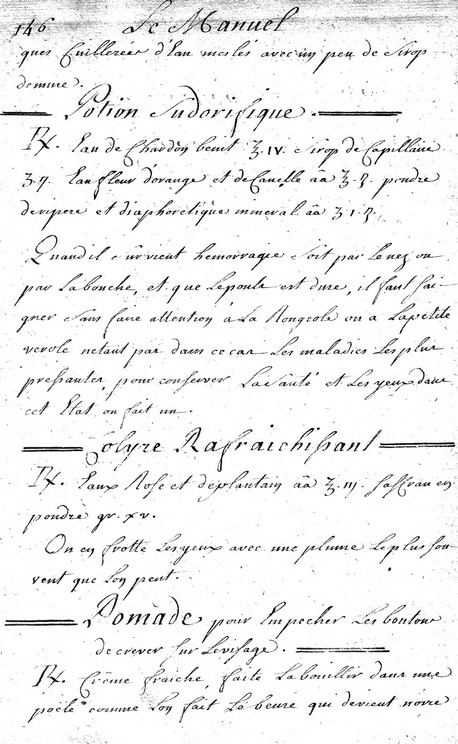 146 Le Manuel
ques Cuillerée d'Eau meslés avec un peu de Sirop
demure.
Potion Sudorifique.
℞. Eau de Chardon benit ℥.IV. Sirop de Capillaire
Eau fleur d'orange et de Canelle āā poudre
devipere et diaphoretique mineral āā
Quand il survient hemorragie soit par le nez ou
par La bouche, et que Lepouls est dure, il faut sai-
gner Sans faire attention à La Rougeole ou a Lapetite
verole n'etant pas dans ce cas Les maladies Les plus
pressantes, pour conserver La Santé et Les yeux dans
cet Etat on fait un
Colyre Rafraichissant
℞. Eaux Rose et deplantain āā ℥.III. saffran en
poudre gr. xv.
On en frotte Les yeux avec une plume Le plus sou-
vent que Lon peut.
Pomade pour Empecher Les boutons
de crever sur Levisage.
℞. Crême fraiche, faite La bouillir dans une
poële comme Lon fait Le beure qui devient noire